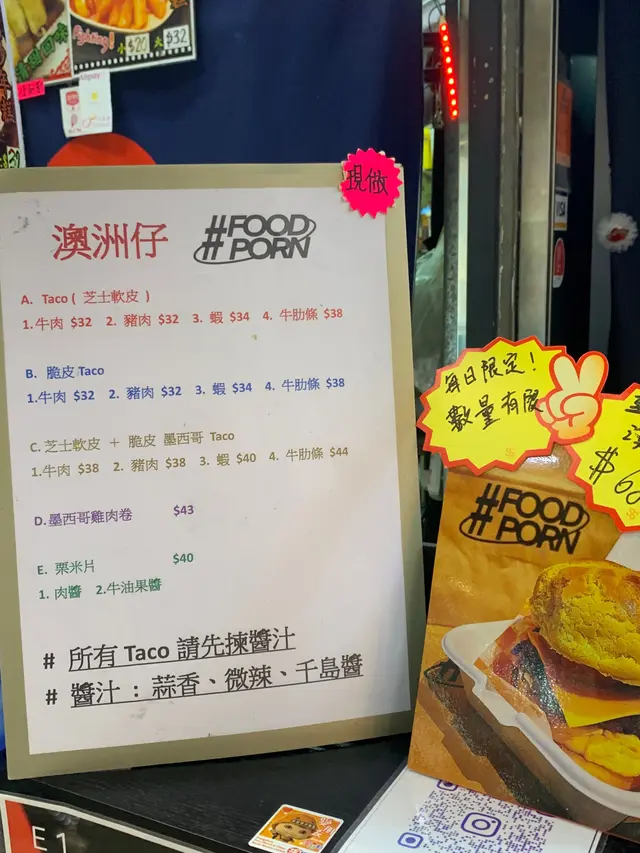 Fighting!
小 $20 大 $32
現做
澳洲仔
#FOOD
PORN
A. Taco ( 芝士軟皮 )
1.牛肉 $32 2. 豬肉 $32 3. 蝦 $34 4. 牛肋條 $38
B. 脆皮 Taco
1.牛肉 $32 2. 豬肉 $32 3. 蝦 $34 4. 牛肋條 $38
C.芝士軟皮 + 脆皮 墨西哥 Taco
1.牛肉 $38 2. 豬肉 $38 3. 蝦 $40 4. 牛肋條 $44
D.墨西哥雞肉卷 $43
E. 栗米片 $40
1. 肉醬 2.牛油果醬
# 所有 Taco 請先揀醬汁
# 醬汁 : 蒜香、微辣、千島醬
VISA
每日限定!
數量有限
#FOOD
PORN
E1